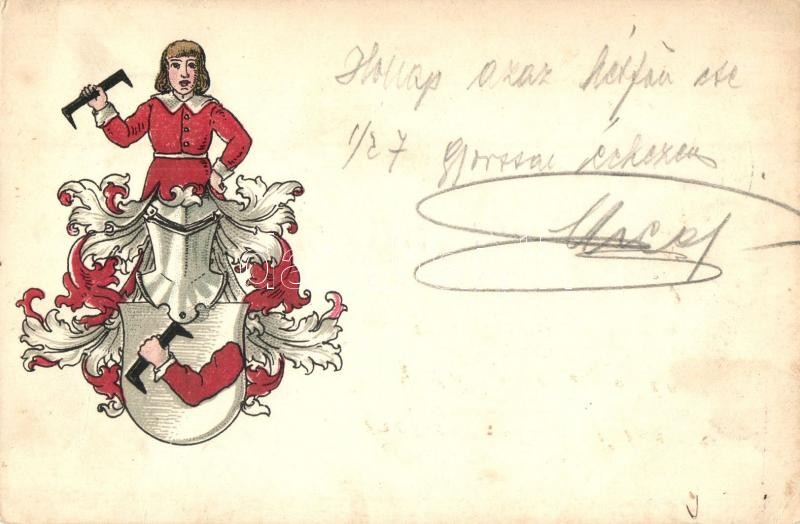 Holnap azaz hétfőn este
1/2 7 gyorssal érkezem